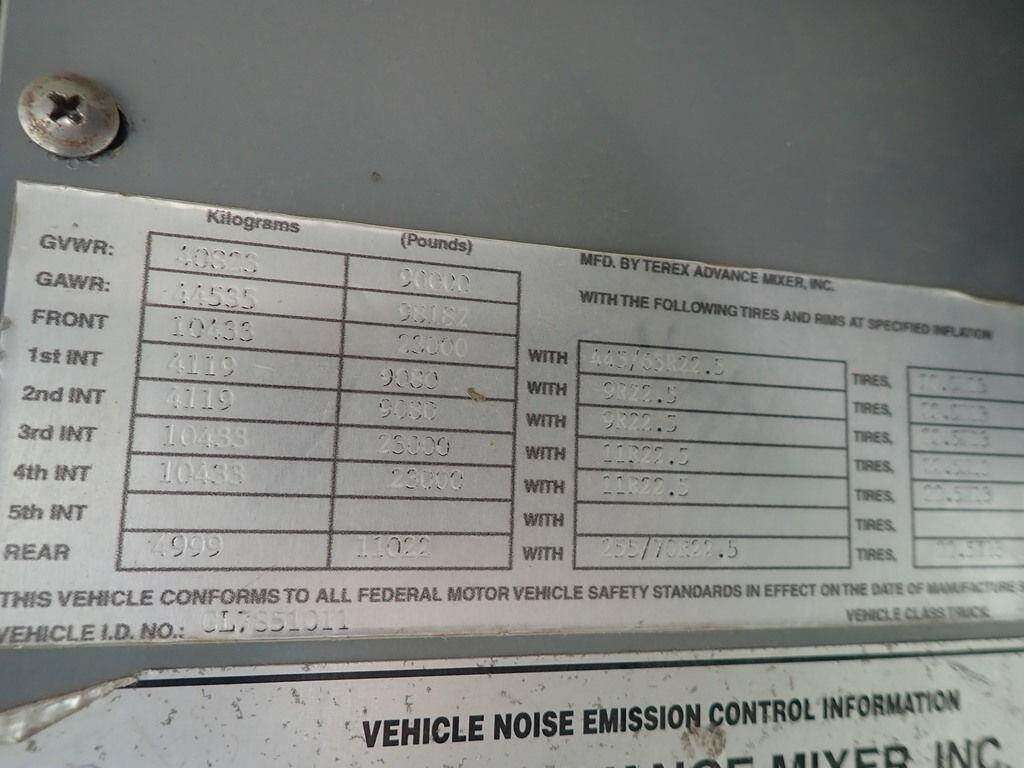 Kilograms (Pounds)
GVWR: 90000
GAWR: 44535 98182
FRONT 10433 23000
1st INT 4119 9080 WITH 445/65R22.5 TIRES,
2nd INT 4119 9080 WITH 9R22.5 TIRES,
3rd INT 10433 23000 WITH 9R22.5 TIRES,
4th INT 10433 23000 WITH 11R22.5 TIRES,
5th INT WITH 11R22.5 TIRES,
WITH TIRES,
REAR 4999 11022 WITH 255/70R22.5 TIRES,
MFD. BY TEREX ADVANCE MIXER, INC.
WITH THE FOLLOWING TIRES AND RIMS AT SPECIFIED INFLATION
THIS VEHICLE CONFORMS TO ALL FEDERAL MOTOR VEHICLE SAFETY STANDARDS IN EFFECT ON THE DATE OF MANUFACTURE
VEHICLE I.D. NO.: VEHICLE CLASS TRUCK
VEHICLE NOISE EMISSION CONTROL INFORMATION
MIXER, INC.